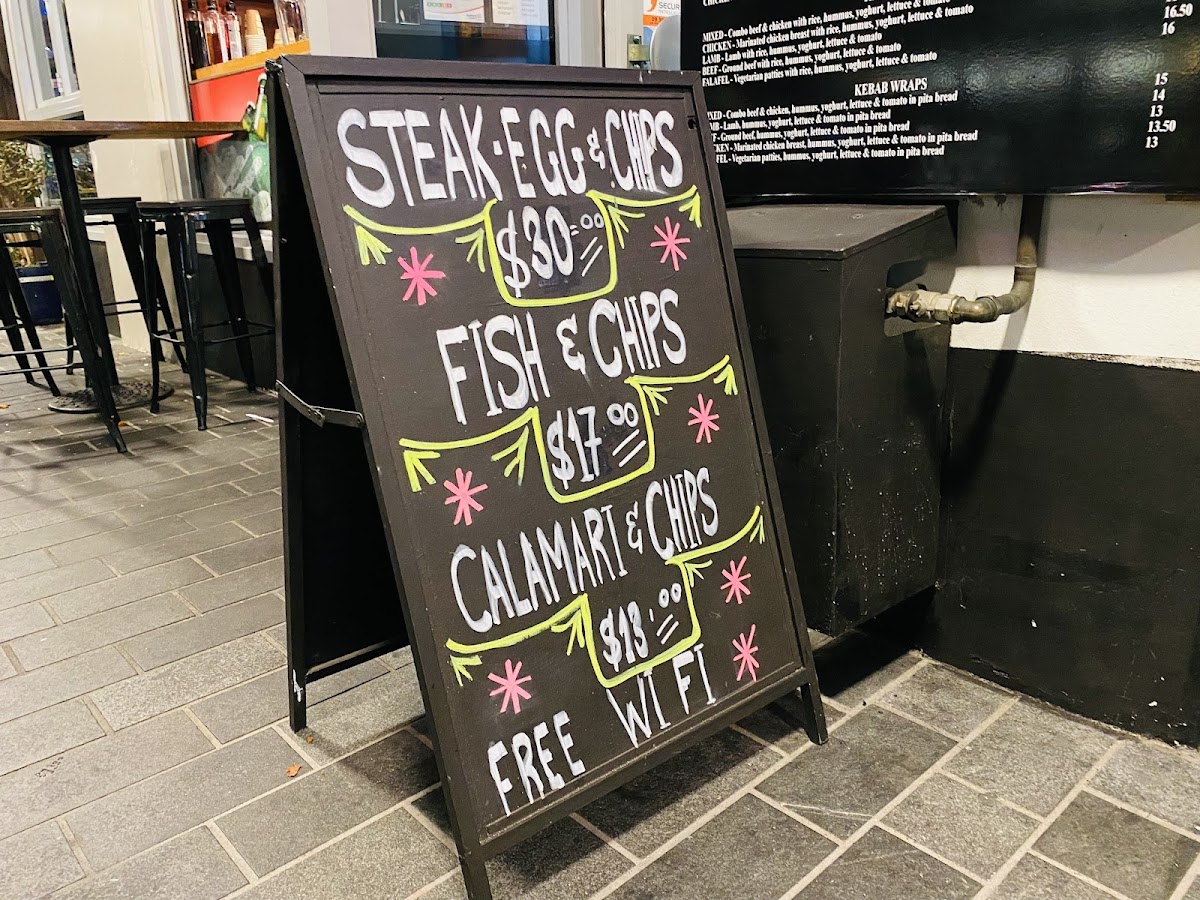 STEAK·EGG & CHIPS
$30=00
FISH & CHIPS
$17 00
CALAMARI & CHIPS
$13'00
FREE WI FI
SECUR
MIXED - Combo beef & chicken with rice, hummus, yoghurt, lettuce & tomato
CHICKEN - Marinated chicken breast with rice, hummus, yoghurt, lettuce & tomato
LAMB - Lamb with rice, hummus, yoghurt, lettuce & tomato
BEEF - Ground beef with rice, hummus, yoghurt, lettuce & tomato
FALAFEL - Vegetarian patties with rice, hummus, yoghurt, lettuce & tomato
16.50
16
KEBAB WRAPS
XED - Combo beef & chicken, hummus, yoghurt, lettuce & tomato in pita bread 15
MB - Lamb, hummus, yoghurt, lettuce & tomato in pita bread 14
EF - Ground beef, hummus, yoghurt, lettuce & tomato in pita bread 13
CKEN - Marinated chicken breast, hummus, yoghurt, lettuce & tomato in pita bread 13.50
FEL - Vegetarian patties, hummus, yoghurt, lettuce & tomato in pita bread 13